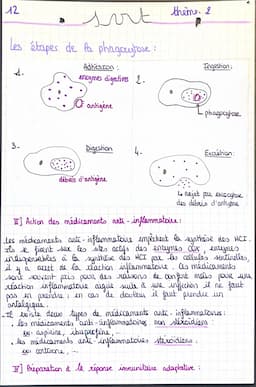 12
SVT
thème 2
Les étapes de la phagocytose :
1.
Adhésion :
enzymes digestives
antigène
2.
Ingestion :
phagocytose
3.
Digestion
débris d'antigène
4.
Excrétion :
rejet par exocytose
des débris d'antigène
II] Action des médicaments anti-inflammatoire :
Les médicaments anti-inflammatoire empêchent la synthèse des MCI.
ils se fixent sur les sites actifs des enzymes COX, enzymes
indispensables à la synthèse des MCI par les cellules sentinelles,
il y a arrêt de la réaction inflammatoire. Ces médicaments
sont souvent pris pour des raisons de confort mais pour une
réaction inflammatoire aiguë suite à une infection il ne faut
pas en prendre, en cas de douleur il faut prendre un
antalgique.
Il existe deux types de médicaments anti-inflammatoires :
les médicaments anti-inflammatoires non stéroïdiens :
ex: aspirine, ibuprofène, ...
les médicaments anti-inflammatoires stéroïdiens :
ex: cortisone, ...
IV] Préparation à la réponse immunitaire adaptative :